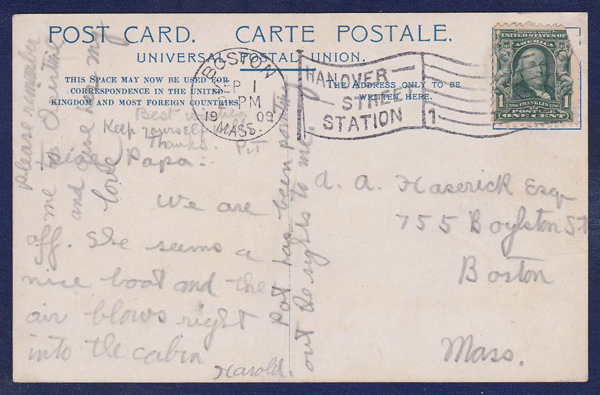 POST CARD. CARTE POSTALE.
UNIVERSAL POSTAL UNION.
THIS SPACE MAY NOW BE USED FOR
CORRESPONDENCE IN THE UNITED
KINGDOM AND MOST FOREIGN COUNTRIES.
THE ADDRESS ONLY TO BE
WRITTEN HERE.
BOSTON
SEP 1
PM
1909
MASS.
HANOVER
STREET
STATION
1
UNITED STATES OF
AMERICA
FRANKLIN
1 1
POSTAGE
ONE CENT
Best
Keep yourself well
Thanks. Pit
Papa:
We are
off. She seems a
nice boat and the
air blows right
into the cabin
Harold.
please remember
me to
and give her my
love
Pot has been pointing
out the sights to me.
A. A. Haserick Esq.
755 Boylston St
Boston
Mass.